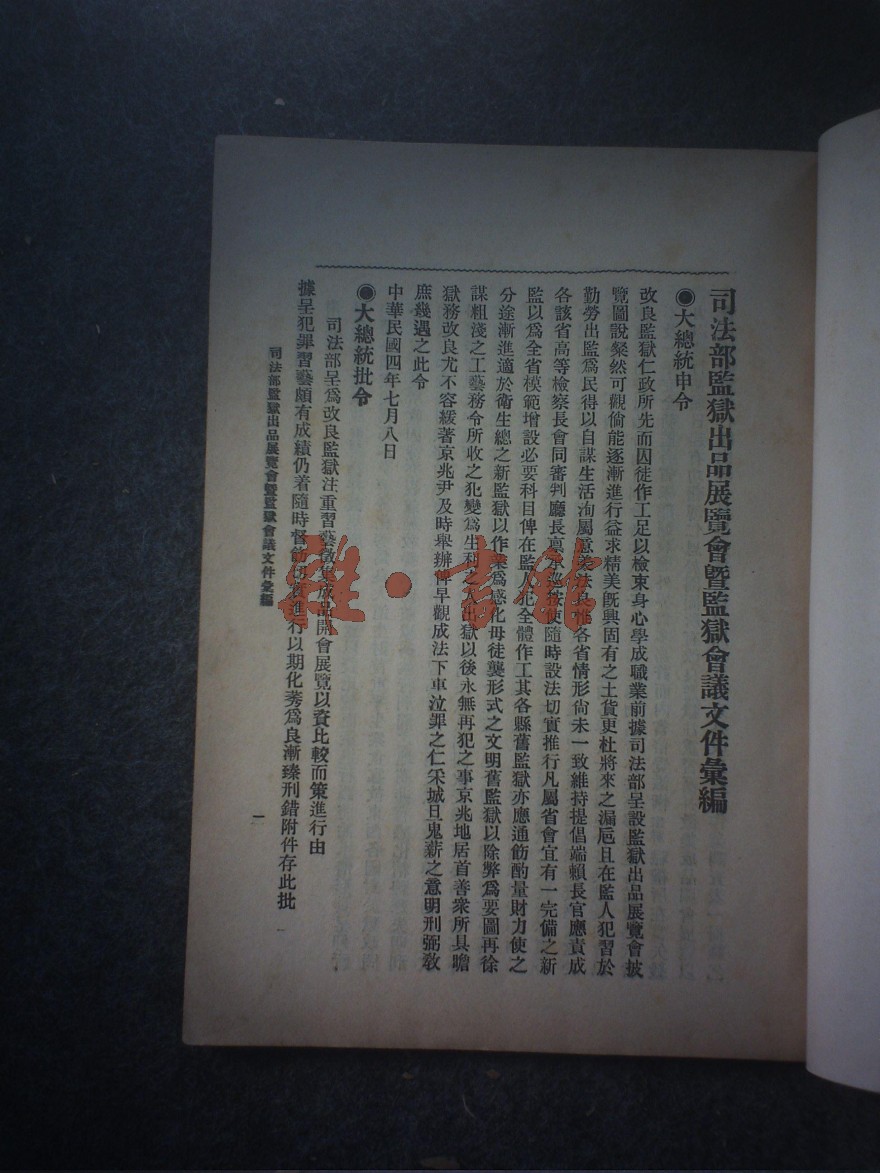 司法部監獄出品展覽會暨監獄會議文件彙編
●大總統申令
改良監獄仁政所先而囚徒作工足以檢束身心學成職業前據司法部呈設監獄出品展覽會披
覽圖說粲然可觀倘能逐漸進行益求精美既興固有之土貨更杜將來之漏巵且在監人犯習於
勤勞出監為民得以自謀生活洵屬意美法良惟各省情形尙未一致維持提倡端賴長官應責成
各該省高等檢察長會同審判廳長禀承巡按使隨時設法切實推行凡屬省會宜有一完備之新
監以爲全省模範增設必要科目俾在監人犯全體作工其各縣舊監獄亦應通筋酌量財力使之
分途漸進適於衛生總之新監獄以作業爲感化毋徒襲形式之文明舊監獄以除弊爲要圖再徐
謀粗淺之工藝務令所收之犯變爲生利之人出獄以後永無再犯之事京兆地居首善衆所具瞻
獄務改良尤不容緩著京兆尹及時舉辦俾早觀成法下車泣罪之仁采城旦鬼薪之意明刑弼敎
庶幾遇之此令
中華民國四年七月八日
●大總統批令
司法部呈爲改良監獄注重習藝徵集成品開會展覽以資比較而策進行由
據呈犯罪習藝頗有成績仍着隨時督飭切實進行以期化莠爲良漸臻刑錯附件存此批
司法部監獄出品展覽會暨監獄會議文件彙編
一
雜·書館